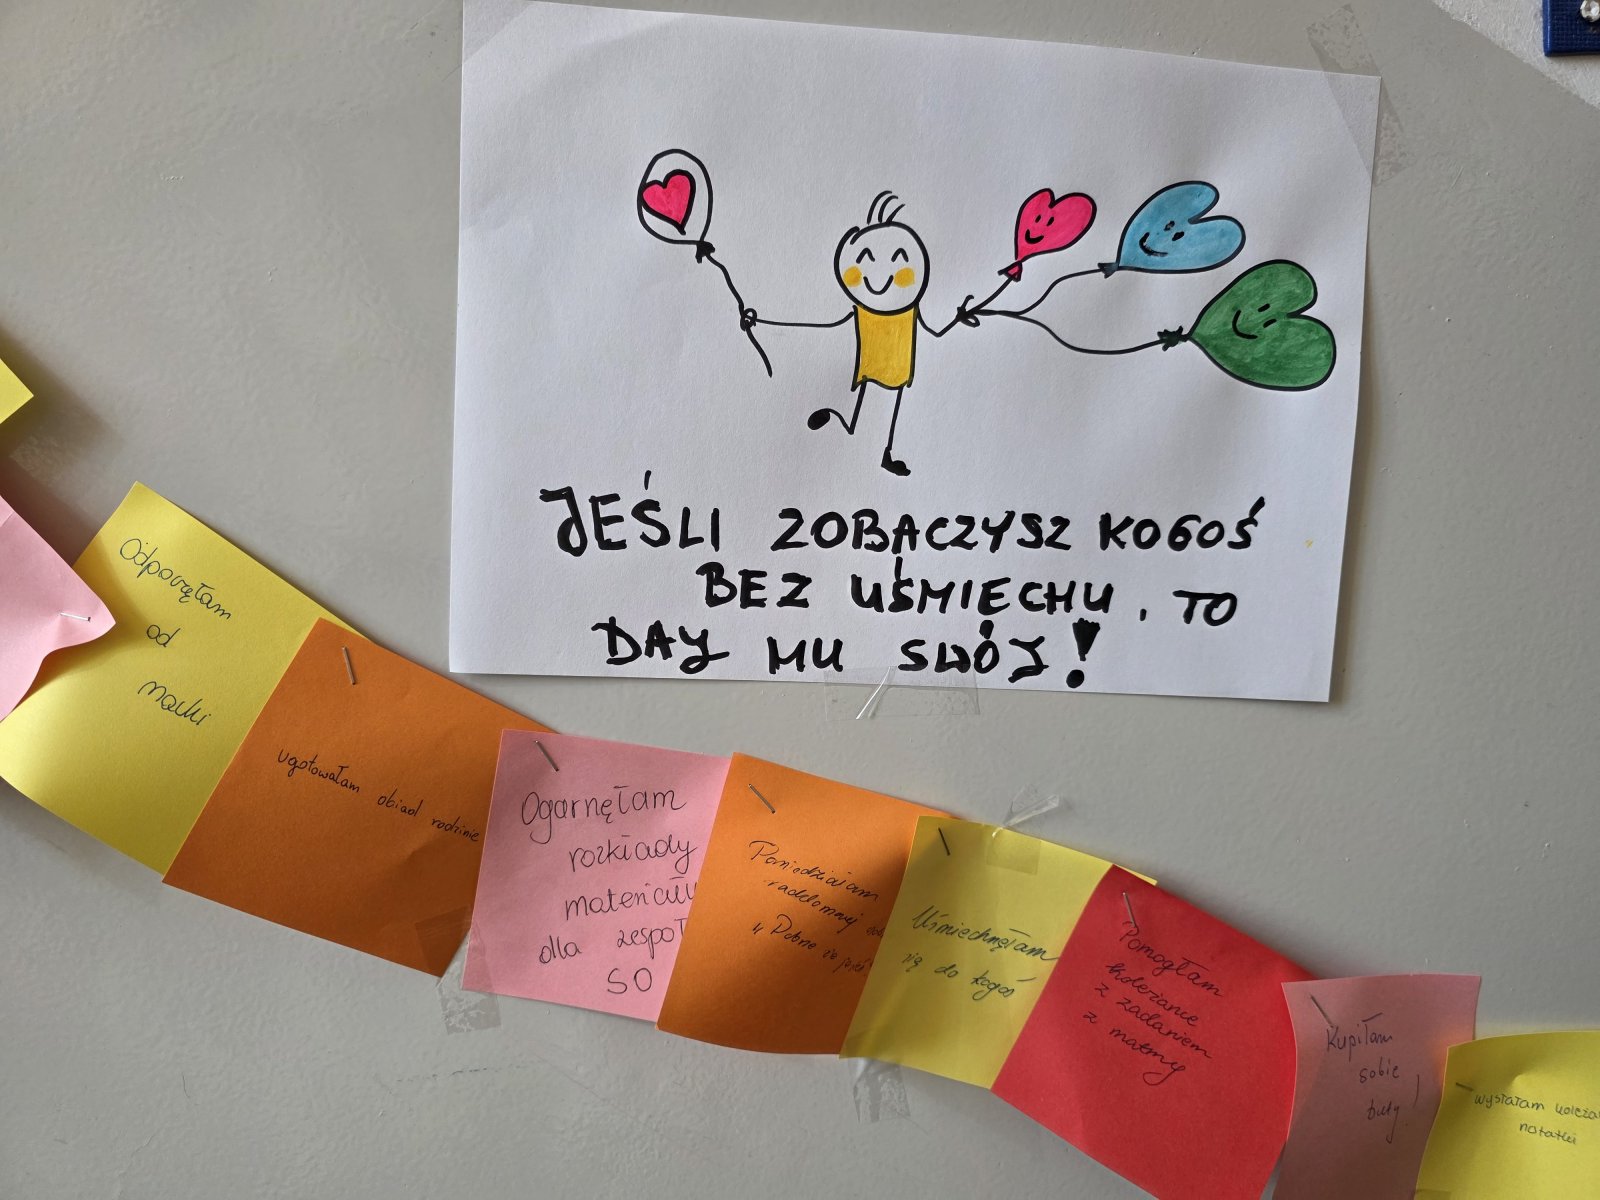 JEŚLI ZOBĄCZYSZ KOGOŚ
BEZ UŚMIECHU, TO
DAJ MU SWÓJ!
Odpoczęłam
od
nauki
ugotowałam obiad rodzinie
Ogarnęłam
rozkłady
materiału
dla zespoł
SO
Powiedziałam
"Dobrze że jesteś"
Uśmiechnęłam
się do kogoś
Pomogłam
koleżance
z zadaniem
z matmy
Kupiłam
sobie
buty!
wysłałam koleża
notatki